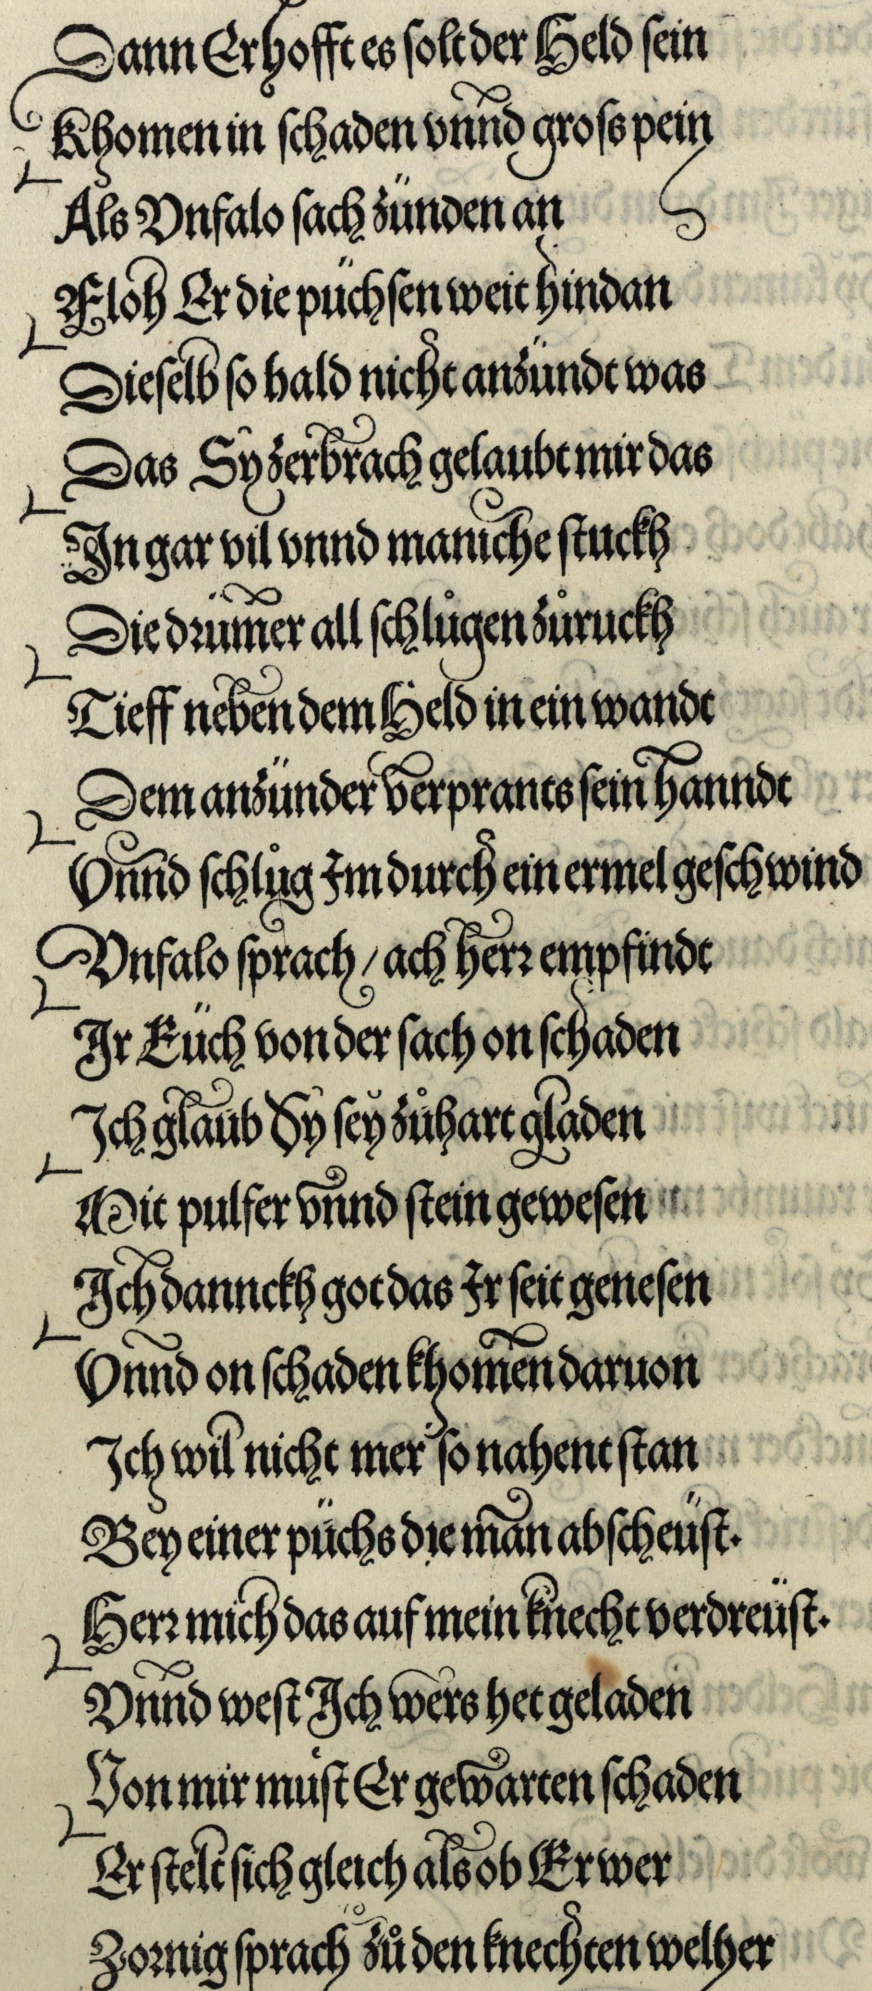 Dann Er hofft es solt der Held sein
Khomen in schaden vnnd gross pein
Als Vnfalo sach zünden an
Floh Er die püchsen weit hindan
Dieselb so bald nicht anzündt was
Das Sy zerbrach gelaubt mir das
In gar vil vnnd maniche stuckh
Die drümer all schlůgen zůruckh
Tieff neben dem Held in ein wandt
Dem anzünder verprants sein hanndt
Vnnd schlůg Im durch ein ermel geschwind
Vnfalo sprach / ach herr empfindt
Ir Eüch von der sach on schaden
Ich glaub Sy sey zůhart gladen
Mit pulfer vnnd stein gewesen
Ich dannckh got das Ir seit genesen
Vnnd on schaden khomen daruon
Ich wil nicht mer so nahent stan
Bey einer püchs die man abscheüst.
Herr mich das auf mein knecht verdreüst.
Vnnd west Ich wers het geladen
Von mir müst Er gewarten schaden
Er stelt sich gleich als ob Er wer
Zornig sprach zů den knechten welher